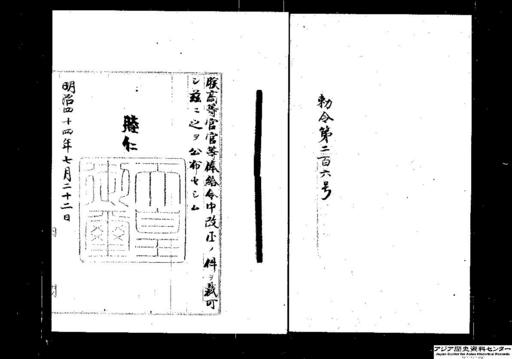 勅令第二百六号
朕高等官官等俸給令中改正ノ件ヲ裁可
シ茲ニ之ヲ公布セシム
睦仁
天皇御璽
明治四十四年七月二十二日
アジア歴史資料センター
Japan Center for Asian Historical Records